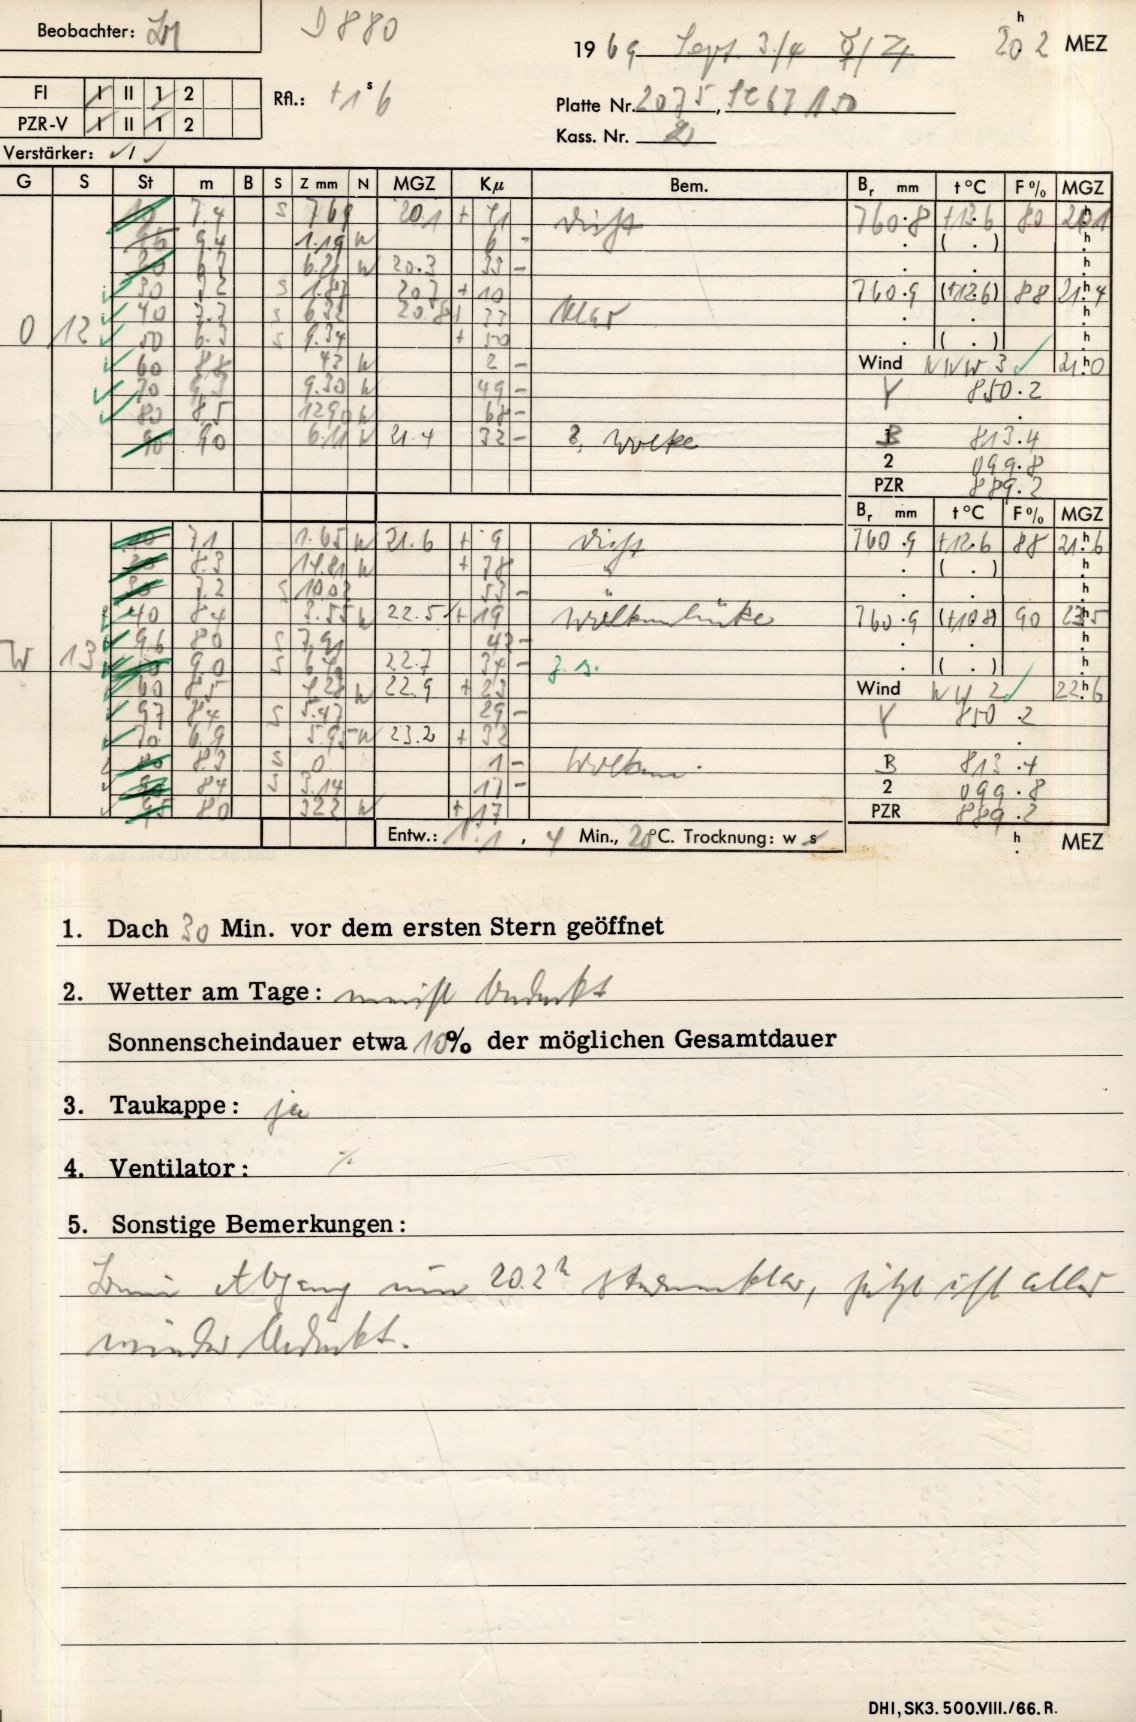 Beobachter: D 880
1969 Sept. 3/4 20h2 MEZ
FI I II 1 2 Rfl.: +1s6
PZR-V I II 1 2
Platte Nr. 2075,
Kass. Nr.
Verstärker: √/√
G S St m B S Z mm N MGZ Kμ Bem. Br mm t °C F % MGZ
7.4 S 7.69 20.1 + Dicht 760.8 +13.6 80
9.4 1.19 W 6 - ( . ) h
W 20.3 33 - . . h
30 S 1.87 20.7 + 10 760.9 (+12.6) 88 21h4
40 7.7 S 6.32 20.8 + 33 klar . . h
O 12 50 6.3 S 9.34 + 50 . ( . ) h
60 8.8 43 W 2 - Wind WNW 3 21h0
70 9.30 W 49 - 850.2
80 8.5 12.90 W 68 -
90 9.0 6.11 W 21.4 32 - Wolke B 813.4
2 099.8
PZR 889.2
Br mm t °C F % MGZ
7.1 1.65 W 21.6 + 9 Dicht 760.9 +12.6 88 21h6
8.3 14.81 W + 78 " . ( . ) h
7.2 S 10.02 53 - " . . h
40 8.4 3.55 W 22.5 + 19 Wolkenlücke 760.9 (+10.8) 90
96 8.0 S 7.91 43 - . . h
W 13 9.0 S 6.40 22.7 34 - z. s. . ( . ) h
60 8.5 W 22.9 + 23 Wind WW 2 22h6
97 8.4 S 5.47 29 - 850.2
70 6.9 5.95 W 23.2 + 32 .
8.3 S 0 1 - Wolken. B 813.4
8.4 S 3.14 17 - 2 099.8
95 8.0 3.22 W + 17 PZR 889.2
Entw.: 1:1, 4 Min., 20°C. Trocknung: w s h MEZ
1. Dach 30 Min. vor dem ersten Stern geöffnet
2. Wetter am Tage: meist bedeckt
Sonnenscheindauer etwa 10% der möglichen Gesamtdauer
3. Taukappe: ja
4. Ventilator: ·/.
5. Sonstige Bemerkungen:
Beim Abgang um 20.2h sternklar, jetzt ist alles
wieder bedeckt.
DHI, SK3. 500.VIII./66. R.